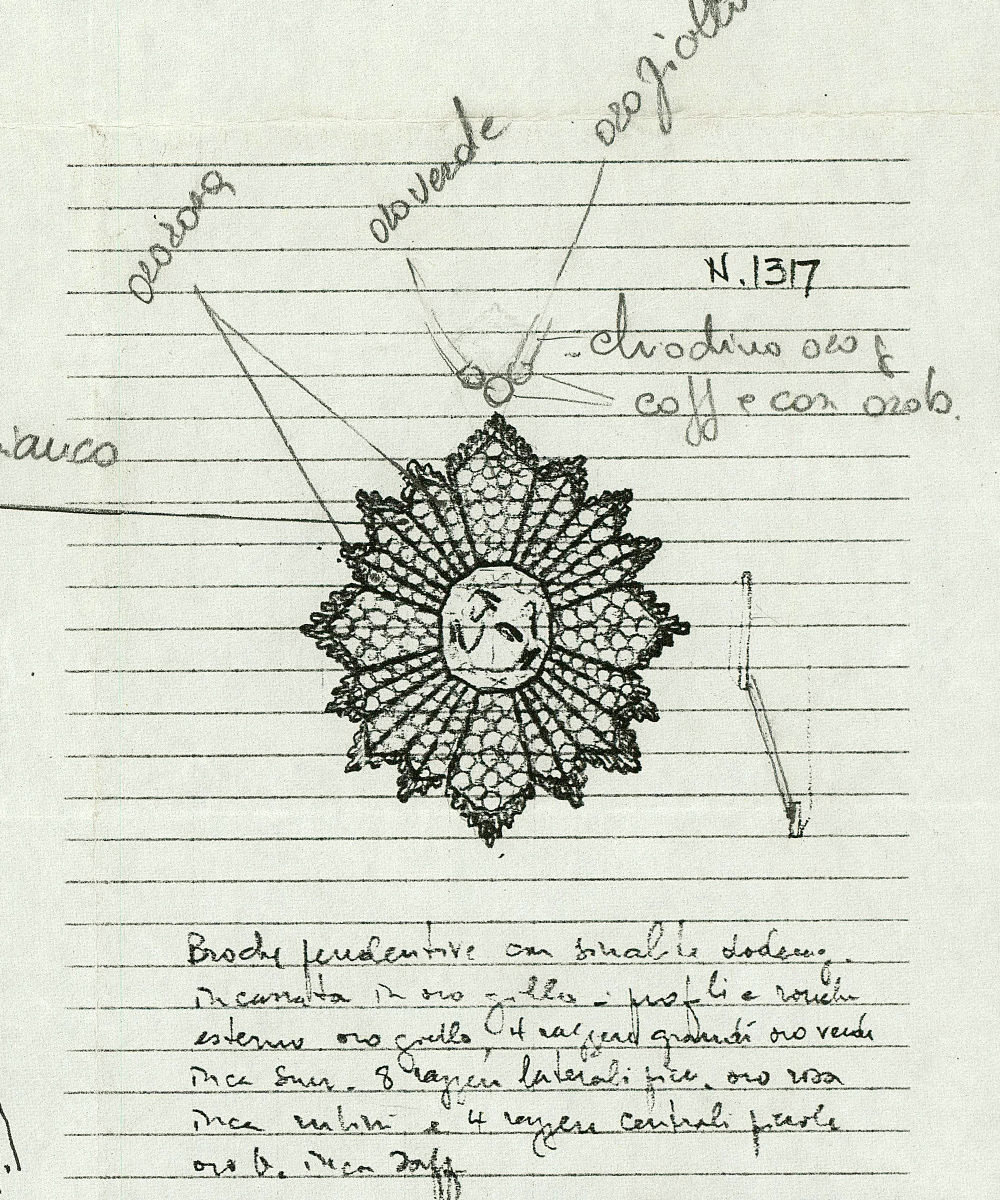 oro giallo
oro verde
oro rosa
N. 1317
chiodino oro g
coff e con oro b.
ianco
Broche pendentive con smalto dodecag.
incassata in oro giallo - profili e ronde
esterno oro giallo, 4 raggere grandi oro verde
inca Smer. 8 raggere laterali picc. oro rosa
inca rubini e 4 raggere centrali piccole
oro b. inca Zaff